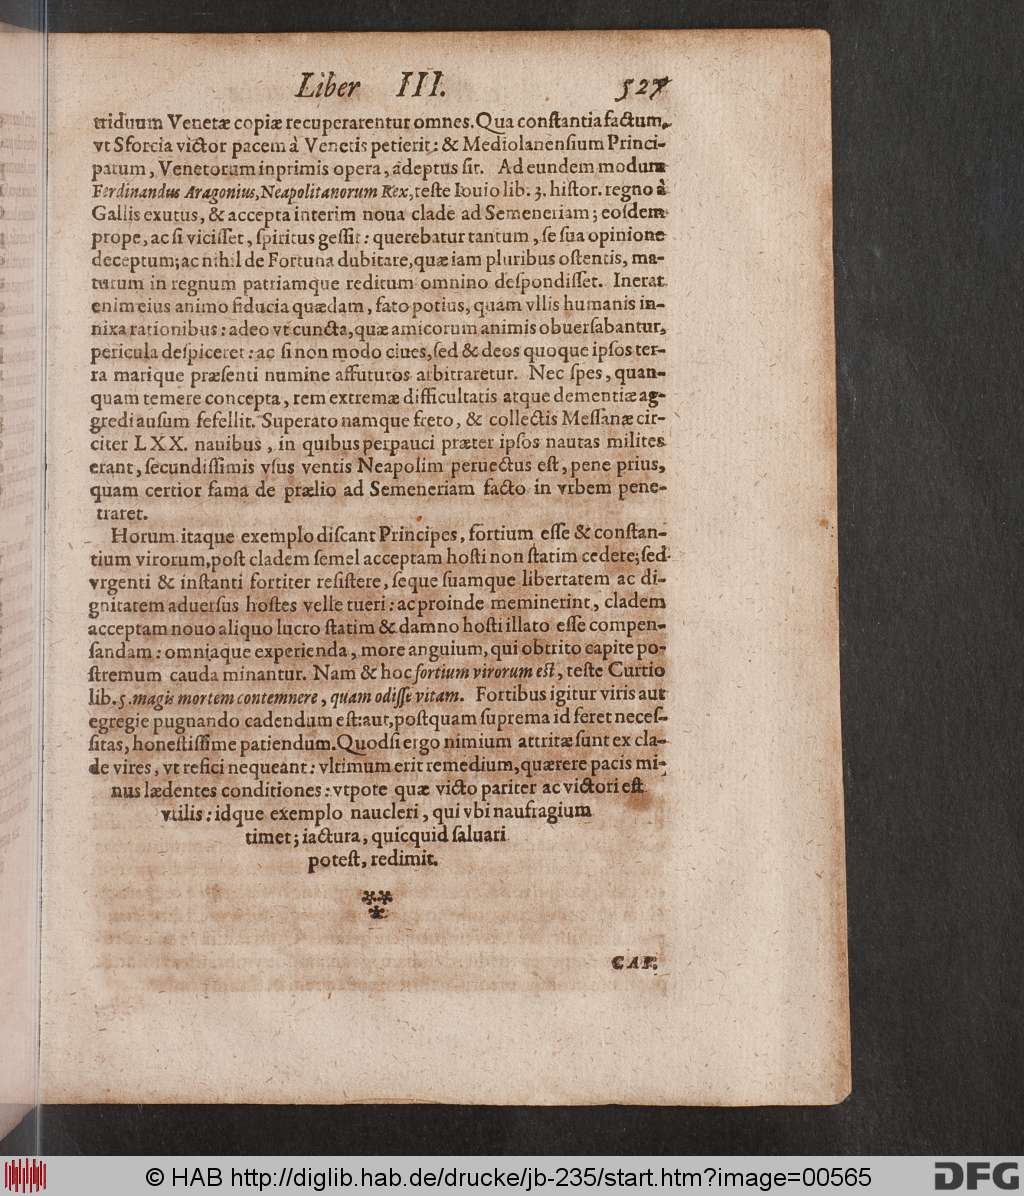 Liber III. 527
triduum Venetæ copiæ recuperarentur omnes. Qua conſtantia factum,
vt Sforcia victor pacem à Venetis petierit: & Mediolanenſium Princi-
patum, Venetorum inprimis opera, adeptus ſit. Ad eundem modum
Ferdinandus Aragonius, Neapolitanorum Rex, teſte Iouio lib. 3. hiſtor. regno à
Gallis exutus, & accepta interim noua clade ad Semeneriam; eoſdem
prope, ac ſi viciſſet, ſpiritus geſſit: querebatur tantum, ſe ſua opinione
deceptum; ac nihil de Fortuna dubitare, quæ iam pluribus oſtentis, ma-
turum in regnum patriamque reditum omnino deſpondiſſet. Inerat
enim eius animo fiducia quædam, fato potius, quam vllis humanis in-
nixa rationibus: adeo vt cuncta, quæ amicorum animis obuerſabantur,
pericula deſpiceret: ac ſi non modo ciues, ſed & deos quoque ipſos ter-
ra marique præſenti numine affuturos arbitraretur. Nec ſpes, quan-
quam temere concepta, rem extremæ difficultatis atque dementiæ ag-
gredi auſum fefellit. Superato namque freto, & collectis Meſſanæ cir-
citer LXX. nauibus, in quibus perpauci præter ipſos nautas milites
erant, ſecundiſſimis vſus ventis Neapolim peruectus eſt, pene prius,
quam certior fama de prælio ad Semeneriam facto in vrbem pene-
traret.
Horum itaque exemplo diſcant Principes, fortium eſſe & conſtan-
tium virorum, poſt cladem ſemel acceptam hoſti non ſtatim cedere; ſed
vrgenti & inſtanti fortiter reſiſtere, ſeque ſuamque libertatem ac di-
gnitatem aduerſus hoſtes velle tueri: ac proinde meminerint, cladem
acceptam nouo aliquo lucro ſtatim & damno hoſti illato eſſe compen-
ſandam: omniaque experienda, more anguium, qui obtrito capite po-
ſtremum cauda minantur. Nam & hoc fortium virorum eſt, teſte Curtio
lib. 5. magis mortem contemnere, quam odiſſe vitam. Fortibus igitur viris aut
egregie pugnando cadendum eſt: aut, poſtquam ſuprema id feret neceſ-
ſitas, honeſtiſſime patiendum. Quodſi ergo nimium attritæ ſunt ex cla-
de vires, vt refici nequeant: vltimum erit remedium, quærere pacis mi-
nus lædentes conditiones: vtpote quæ victo pariter ac victori eſt
vtilis: idque exemplo naucleri, qui vbi naufragium
timet; iactura, quicquid ſaluari
poteſt, redimit.
CAP.
© HAB http://diglib.hab.de/drucke/jb-235/start.htm?image=00565
DFG